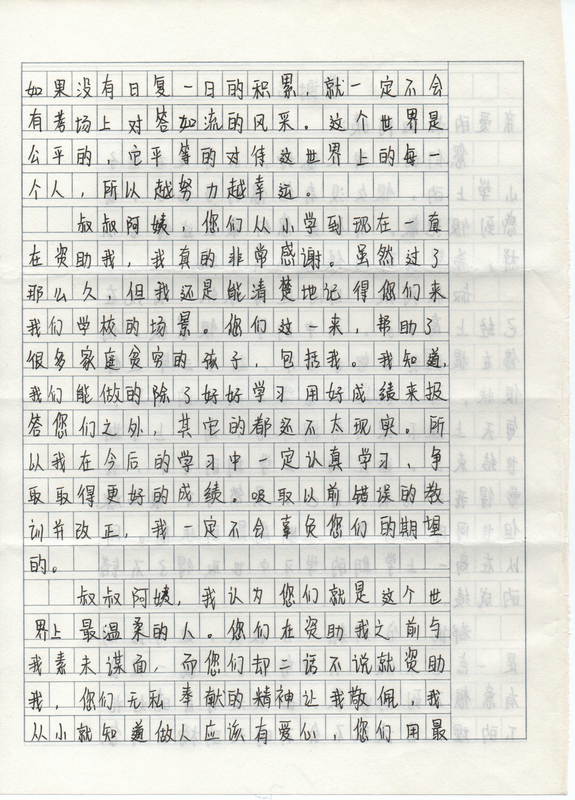 如果没有日复一日的积累,就一定不会
有考场上对答如流的风采。这个世界是
公平的,它平等的对待这世界上的每一
个人,所以越努力越幸运。
叔叔阿姨,您们从小学到现在一直
在资助我,我真的非常感谢。虽然过了
那么久,但我还是能清楚地记得您们来
我们学校的场景。您们这一来,帮助了
很多家庭贫穷的孩子,包括我。我知道,
我们能做的除了好好学习用好成绩来报
答您们之外,其它的都还不太现实。所
以我在今后的学习中一定认真学习,争
取取得更好的成绩。吸取以前错误的教
训并改正,我一定不会辜负您们的期望
的。
叔叔阿姨,我认为您们就是这个世
界上最温柔的人。您们在资助我之前与
我素未谋面,而您们却二话不说就资助
我,您们无私奉献的精神让我敬佩,我
从小就知道做人应该有爱心,您们用最